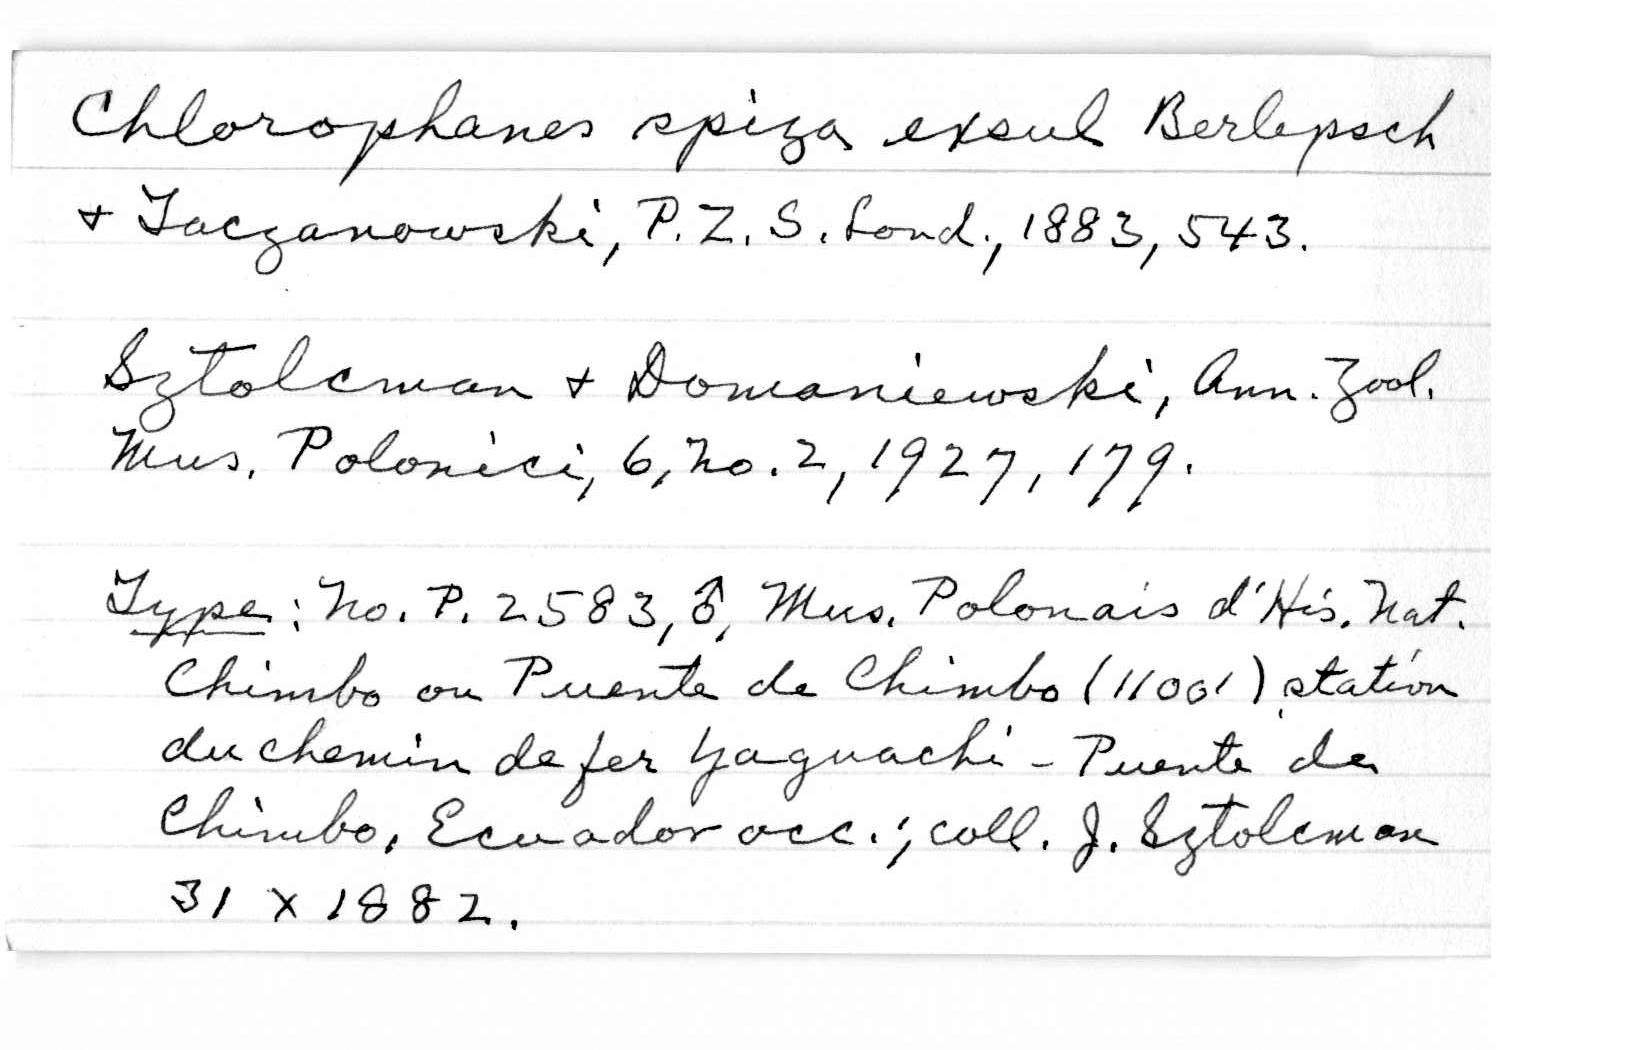 Chlorophanes spiza exsul Berlepsch
+ Taczanowski, P.Z.S. Lond., 1883, 543.
Sztolcman + Domaniewski, Ann. Zool.
Mus. Polonici, 6, no. 2, 1927, 179.
Type: no. P. 2583, ♂, Mus. Polonais d'His. Nat.
Chimbo ou Puente de Chimbo (1100') station
du chemin de fer Yaguachi - Puente de
Chimbo, Ecuador occ.; coll. J. Sztolcman
31 X 1882.